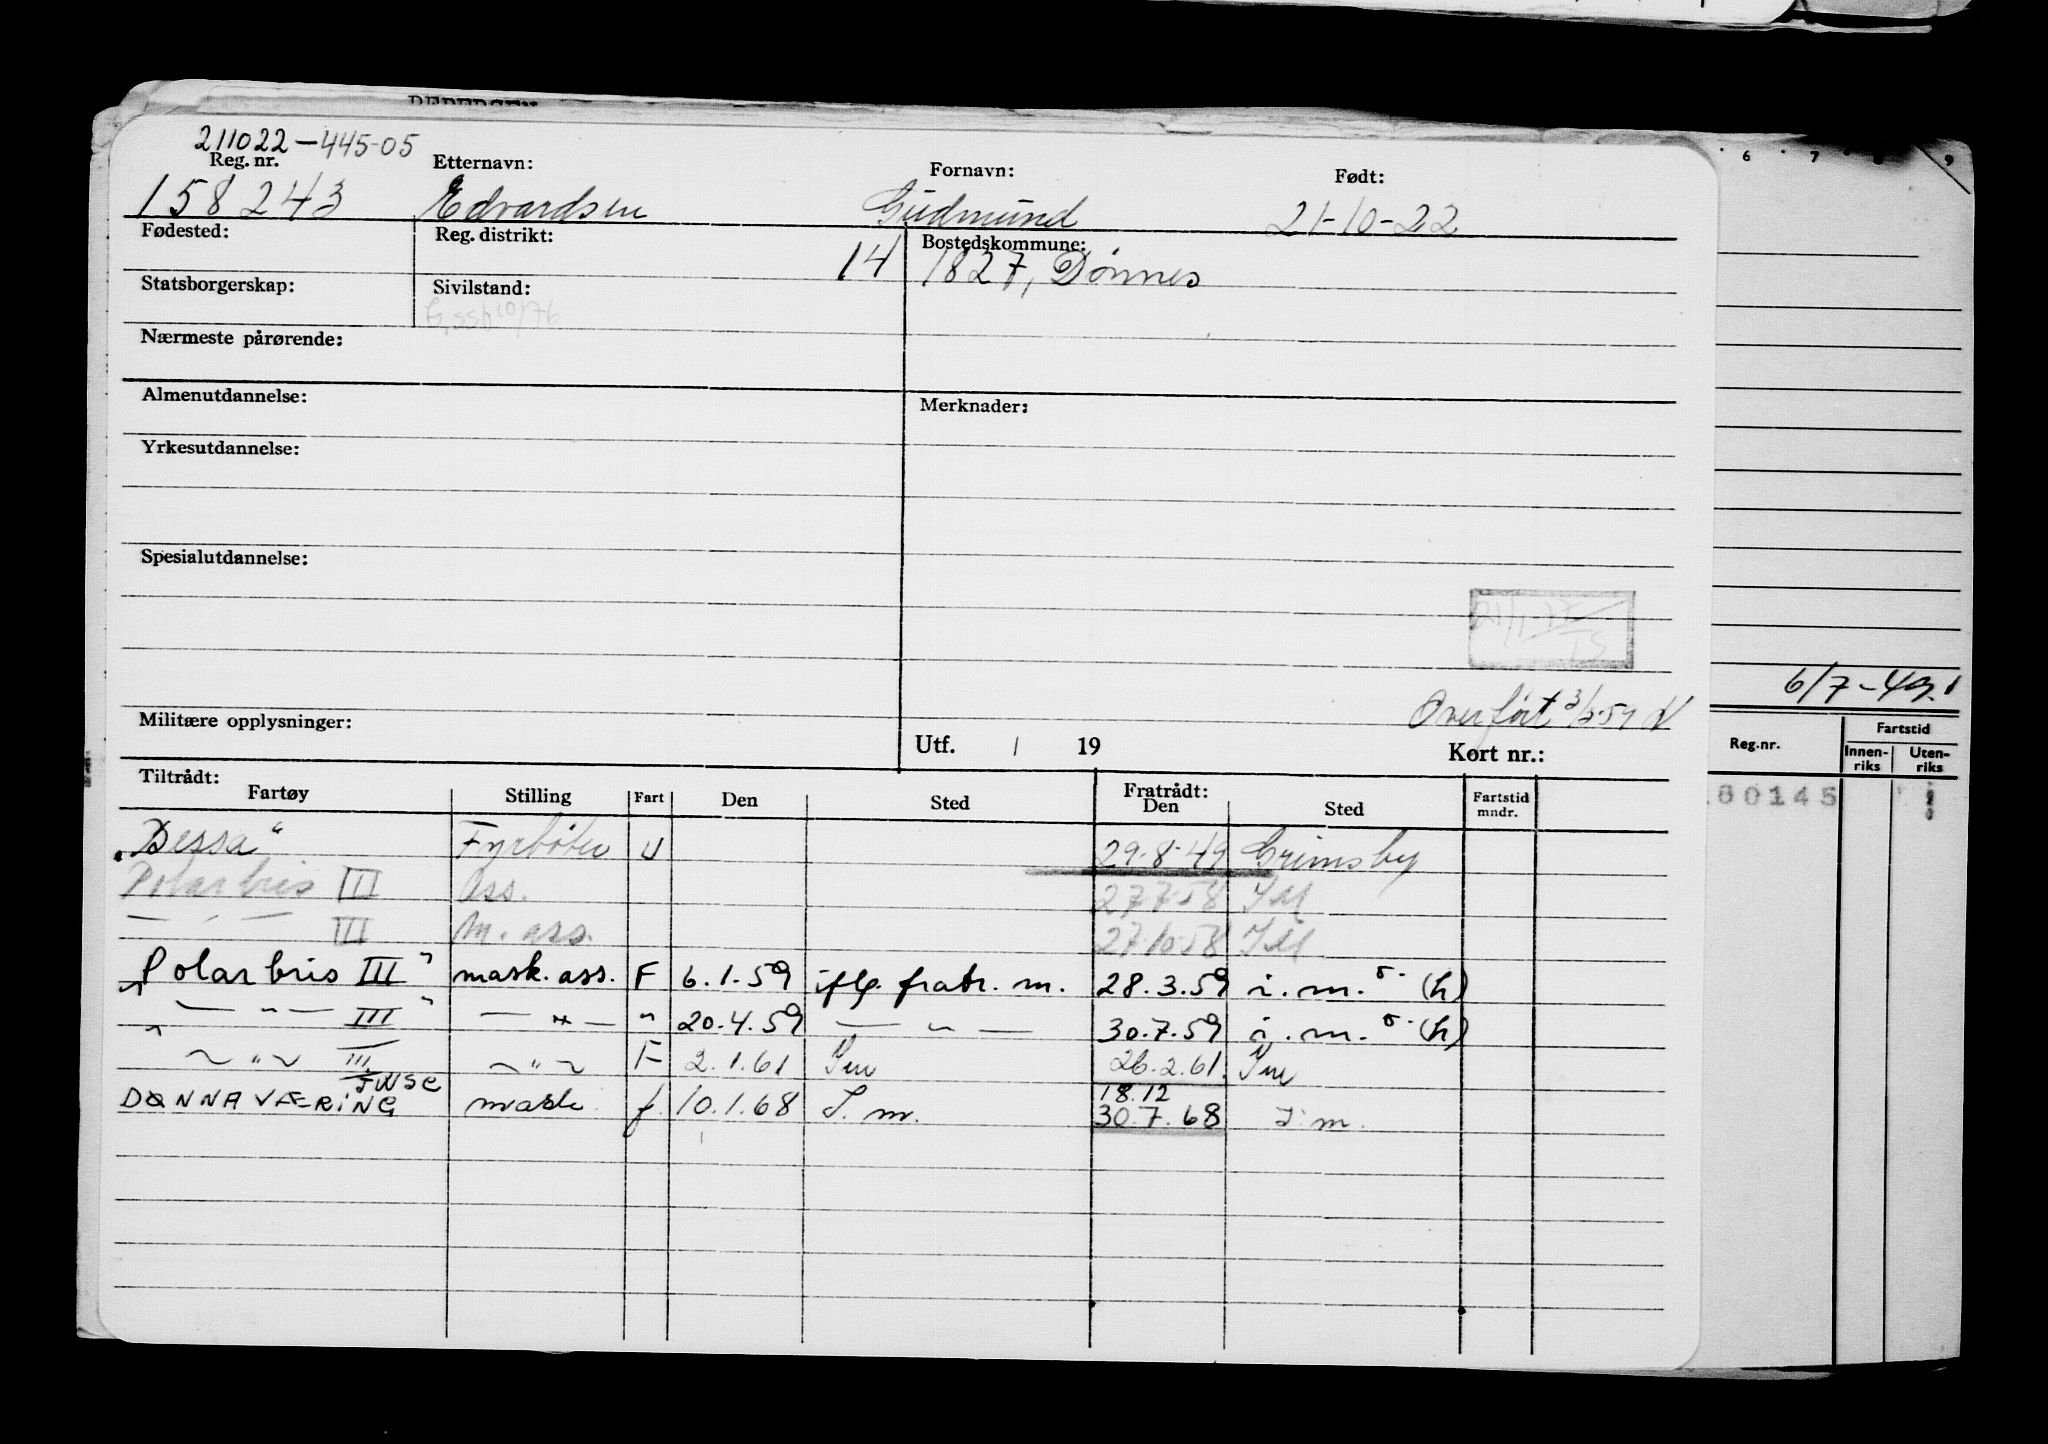 211022-445-05
Reg. nr. Etternavn: Fornavn: Født:
158243 Edvardsen Gudmund 21-10-22
Fødested: Reg. distrikt: 14 Bostedskommune:
1827, Dønnes
Statsborgerskap: Sivilstand:
10/76
Nærmeste pårørende:
Almenutdannelse: Merknader:
Yrkesutdannelse:
Spesialutdannelse:
Overført
Militære opplysninger:
Utf. / 19 Kort nr.:
Tiltrådt: Fratrådt:
Fartøy Stilling Fart Den Sted Den Sted Fartstid mndr.
"Dessa" Fyrbøter U 29-8-49 Grimsby
Polarbris III Ass. 27.7.58
— " — III M. ass. 27.10.58
"Polarbris III" mask. ass. F 6.1.59 iflg. fratr. m. 28.3.59 i. m. (h)
"— " — III" — " — " 20.4.59 — " — 30.7.59 i. m. (h)
~ " ~ III ~ " ~ F 2.1.61 26.2.61
DØNNAVÆRING f. 10.1.68 I. m. 18.12
30.7.68 I. m.
6 7 8 9
6/7-49.
Reg.nr. Fartstid
Innen-riks Uten-riks
80145